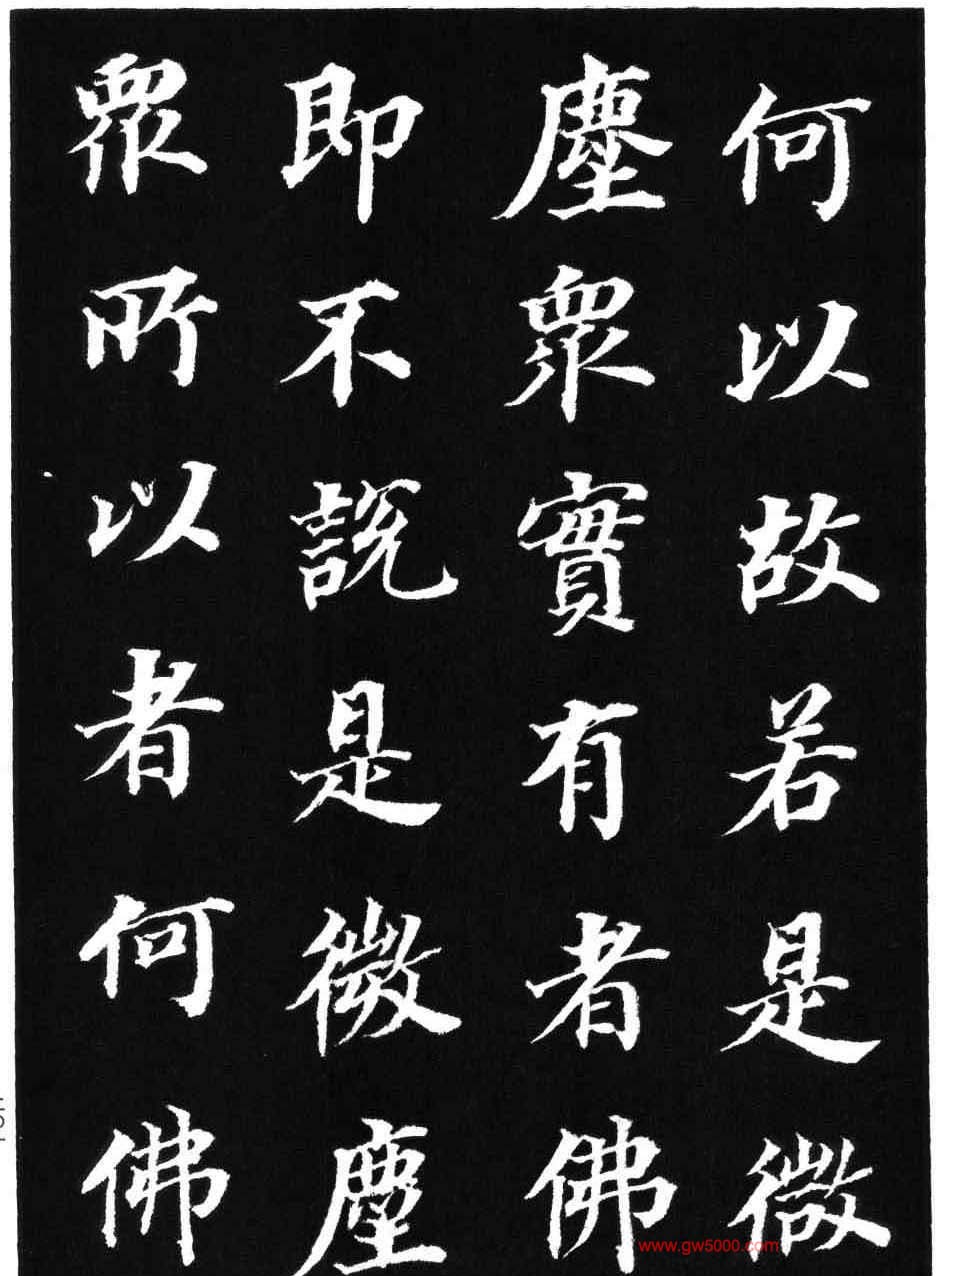 何以故若是微
塵眾實有者佛
即不說是微塵
眾所以者何佛
www.gw5000.com